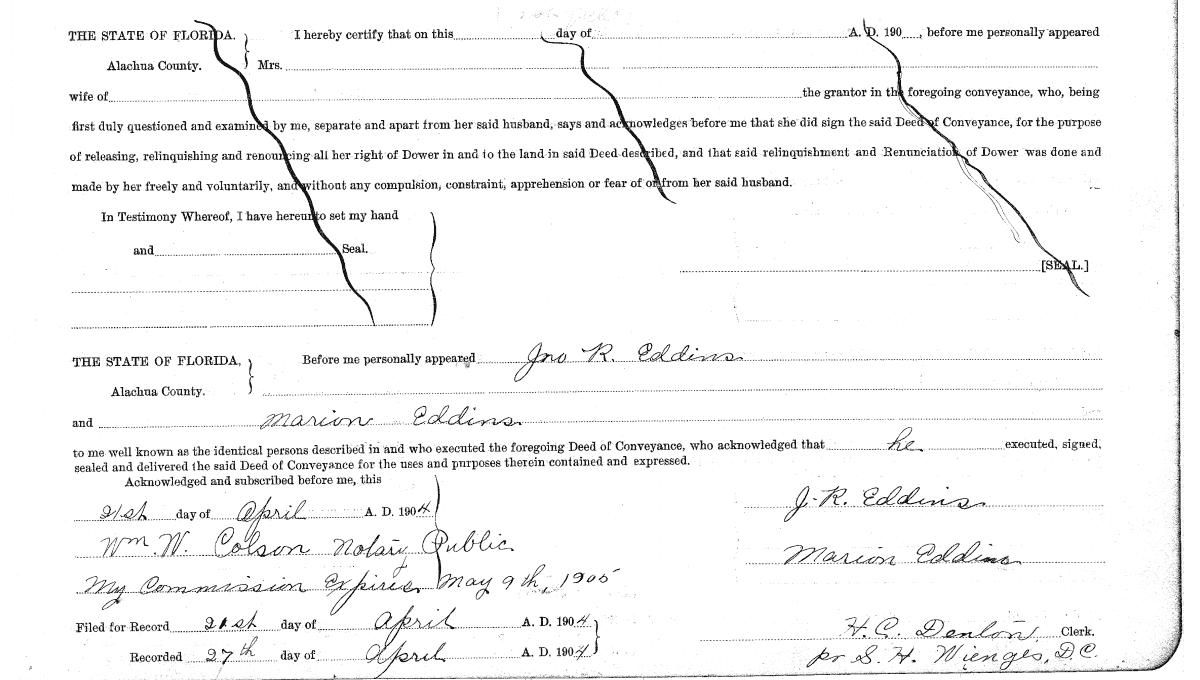 THE STATE OF FLORIDA. I hereby certify that on this day of A. D. 190 , before me personally appeared
Alachua County. Mrs.
wife of the grantor in the foregoing conveyance, who, being
first duly questioned and examined by me, separate and apart from her said husband, says and acknowledges before me that she did sign the said Deed of Conveyance, for the purpose
of releasing, relinquishing and renouncing all her right of Dower in and to the land in said Deed described, and that said relinquishment and Renunciation of Dower was done and
made by her freely and voluntarily, and without any compulsion, constraint, apprehension or fear of or from her said husband.
In Testimony Whereof, I have hereunto set my hand
and Seal.
[SEAL.]
THE STATE OF FLORIDA, Before me personally appeared Jno R. Eddins
Alachua County.
and Marion Eddins
to me well known as the identical persons described in and who executed the foregoing Deed of Conveyance, who acknowledged that he executed, signed,
sealed and delivered the said Deed of Conveyance for the uses and purposes therein contained and expressed.
Acknowledged and subscribed before me, this
21st day of April A. D. 1904 J. R. Eddins
Wm. W. Colson Notary Public Marion Eddins
My Commission Expires May 9th, 1905
Filed for Record 21st day of April A. D. 1904 H. C. Denton, Clerk.
Recorded 27th day of April A. D. 1904 pr S. H. Wienges, D.C.